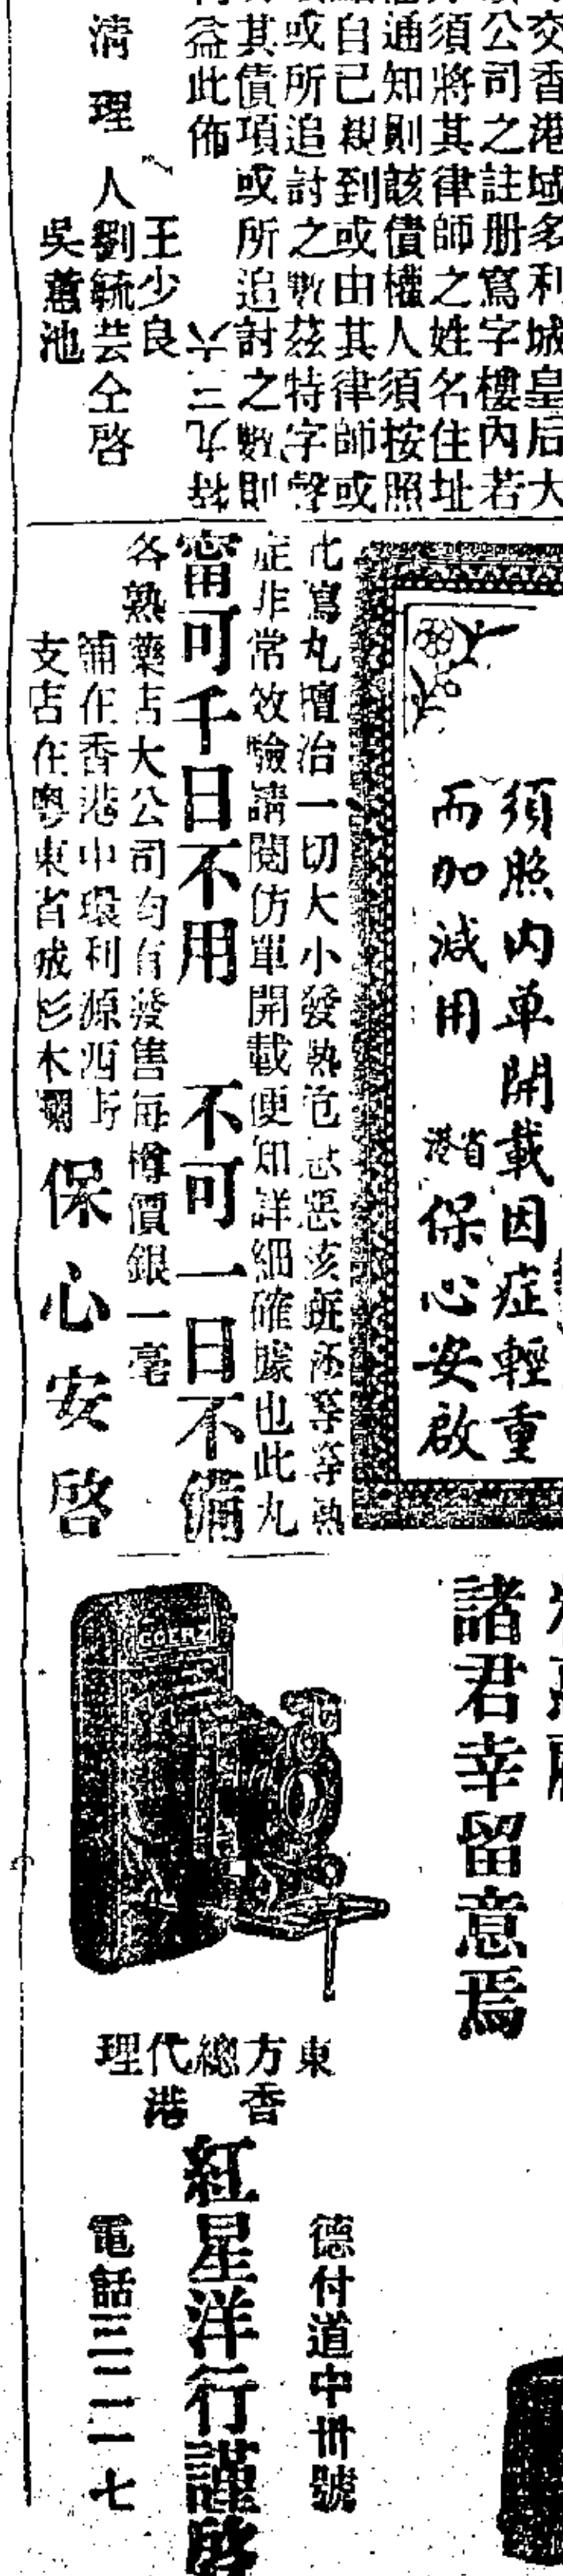 交香港域多利城皇后大
公司之註册寫字樓內若
須將其律師之姓名住址
通知則該債權人須按照
自己親到或由其律師或
或所追討之數茲特字聲
其債項或所追討之數則
益此佈
六三九特
王少良
清理人劉毓芸仝啓
吳蕙池
須照內單開載因症輕重
而加減用
省港保心安啟
治一切大小發熱
症非常效驗請閱仿單開載便知詳細確據也此丸
甯可千日不用 不可一日不備
各熟藥店大公司均有發售每樽價銀一毫
舖在香港中環利源西街
支店在粵東省城杉木欄
保心安啓
諸君幸留意焉
GOERZ
東方總代理
香港
德付道中卅號
紅星洋行謹啓
電話三二一七